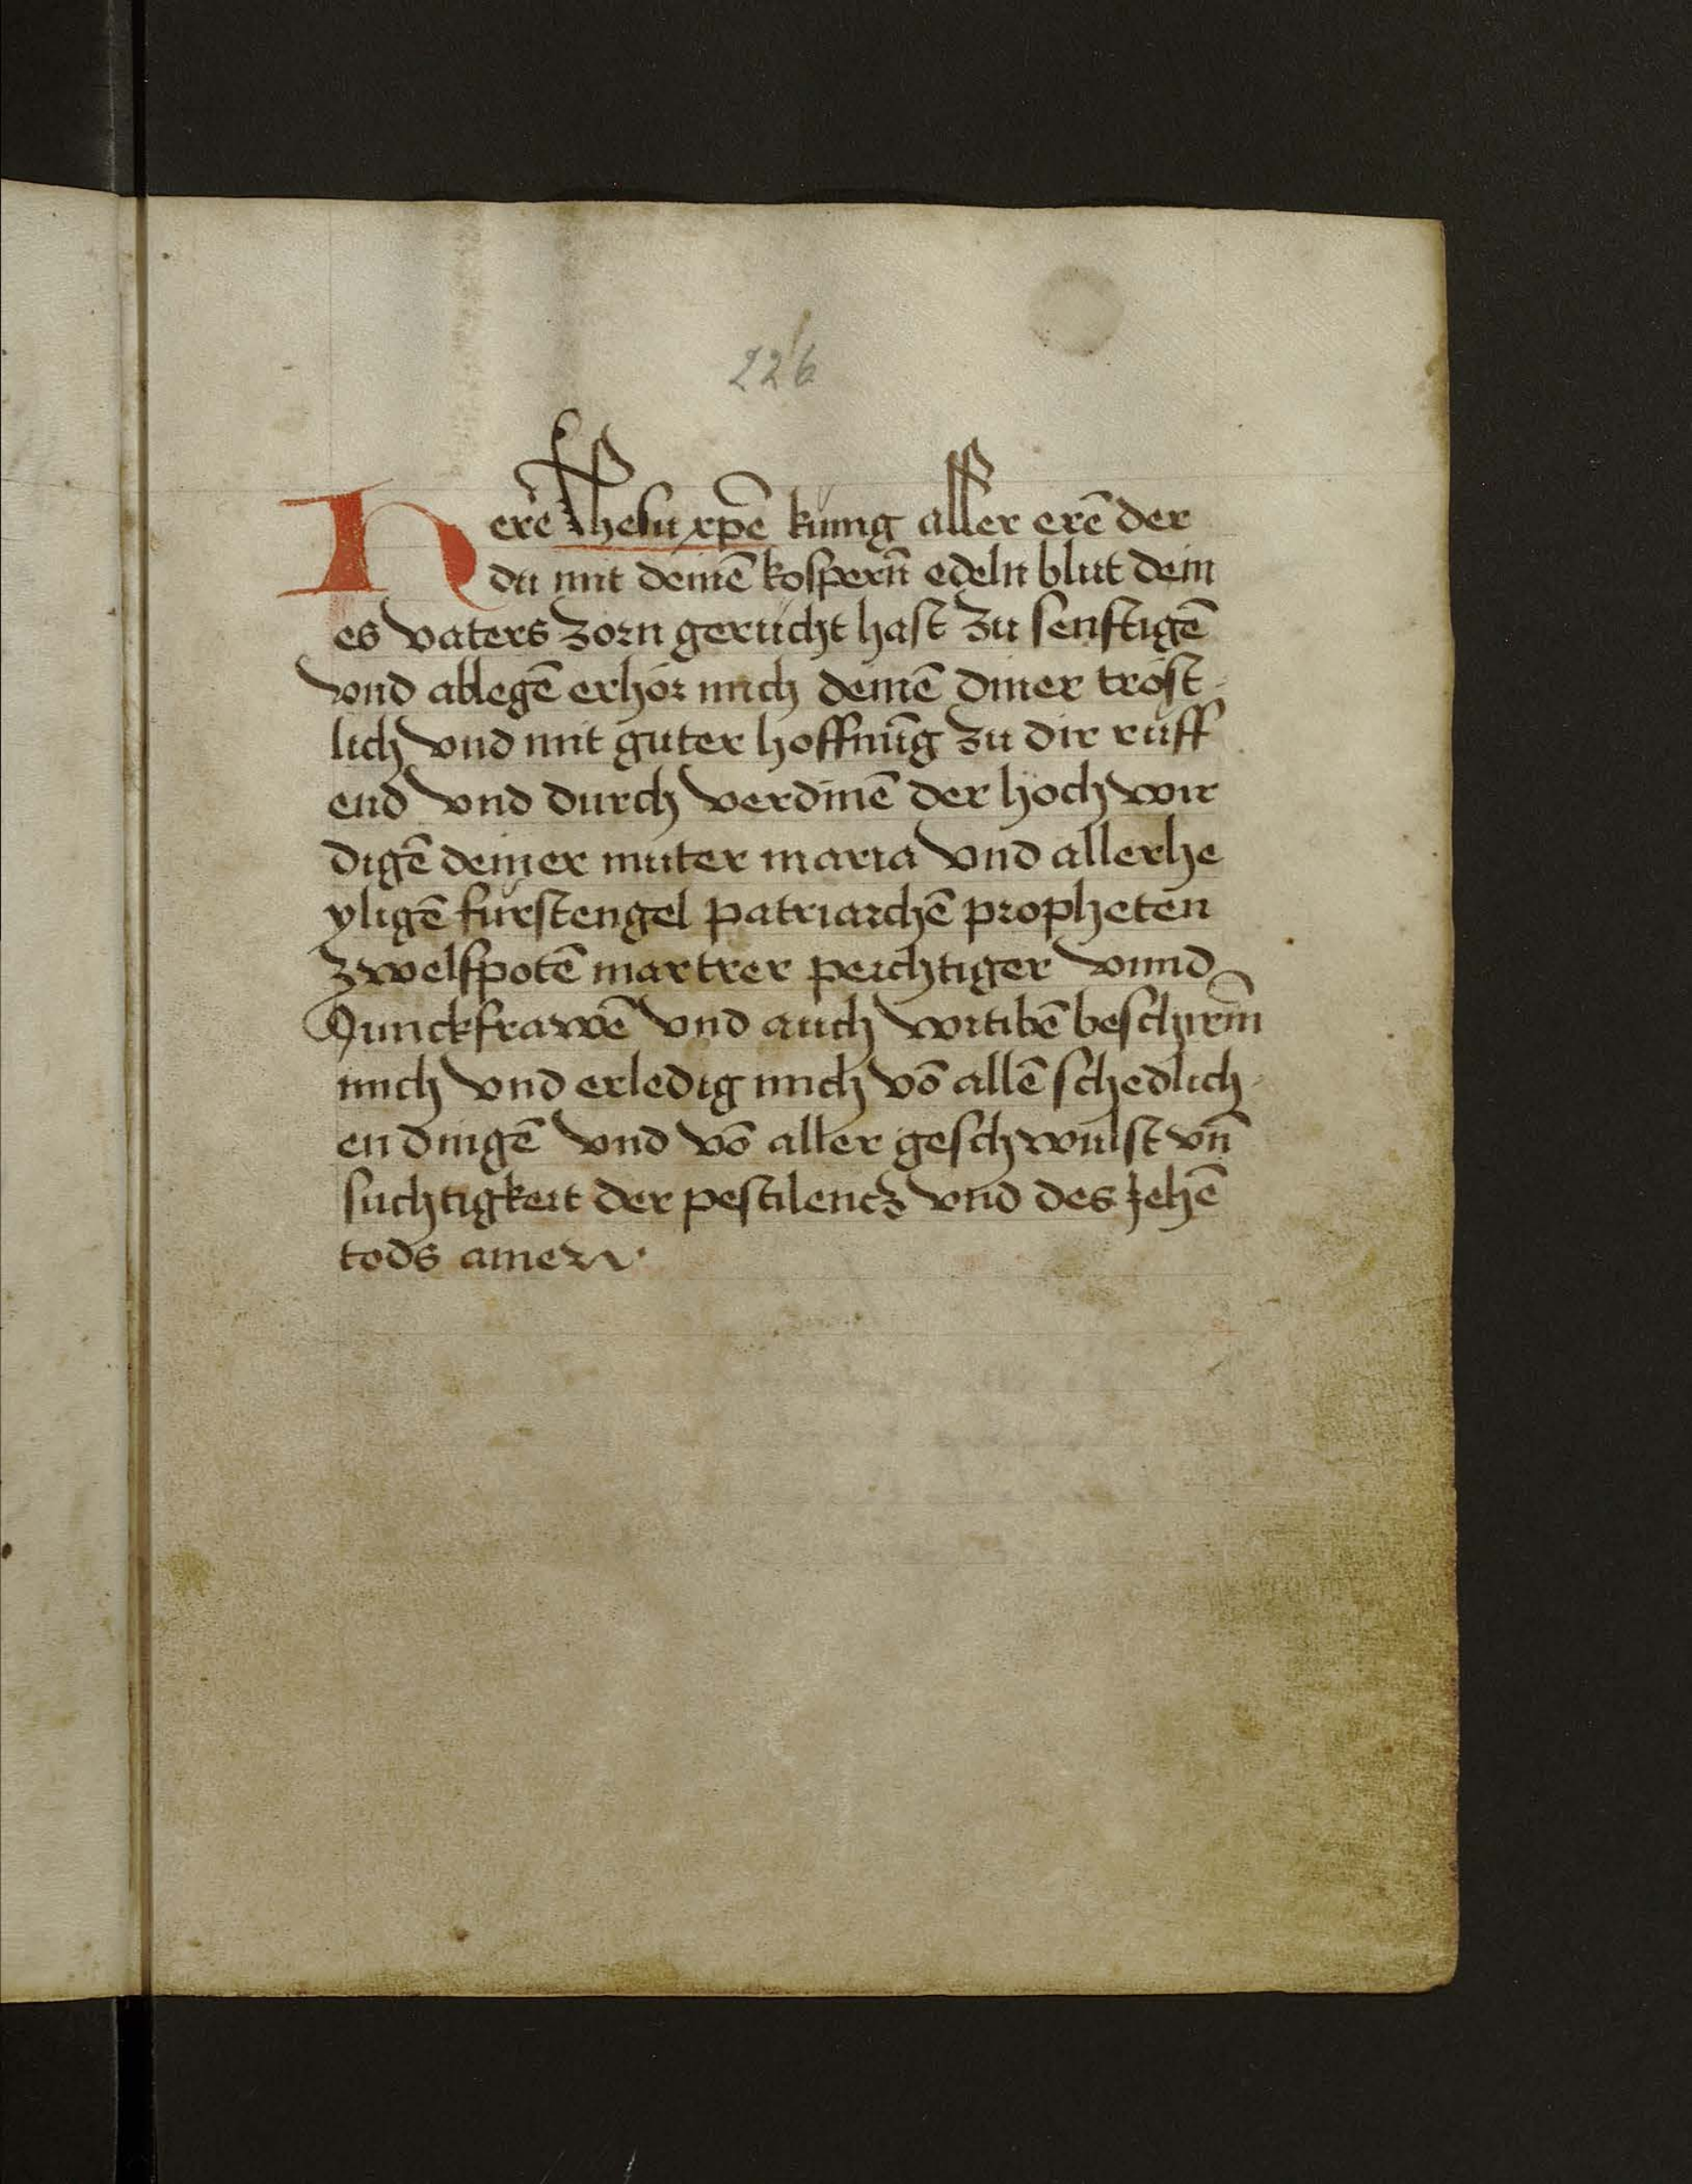 226
Herẽ Jhesu xpẽ kunig aller erẽ der
du mit deinẽ kosperñ edeln blut dein
es vaters zorn gerücht hast zu senftigẽ
vnd ablegẽ erhör mich deinẽ diner tröst-
lich vnd mit guter hoffnũg zu dir rüff
end vnd durch verdinẽ der hochwir
digẽ deiner muter maria vnd allerhe
yligẽ fürstengel patriarchẽ propheten
zwelfpotẽ martrer peichtiger vnnd
Junckfrawẽ vnd auch witibẽ beschirm̃
mich vnd erledig mich võ allẽ schedlich-
en dingẽ vnd võ aller geschwulst vñ
suchtigkeit der pestilencz vnd des jehẽ
tods amen